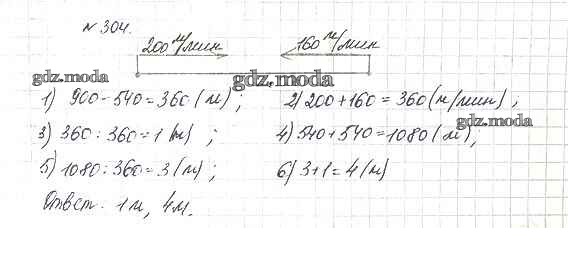 № 304.
200 м/мин 160 м/мин
gdz.moda gdz.moda
1) 900 - 540 = 360 (м) ; 2) 200 + 160 = 360 (м/мин) ;
gdz.moda
3) 360 : 360 = 1 (м) ; 4) 540 + 540 = 1080 (м),
5) 1080 : 360 = 3 (м) ; 6) 3 + 1 = 4 (м)
Ответ. 1 м, 4 м.